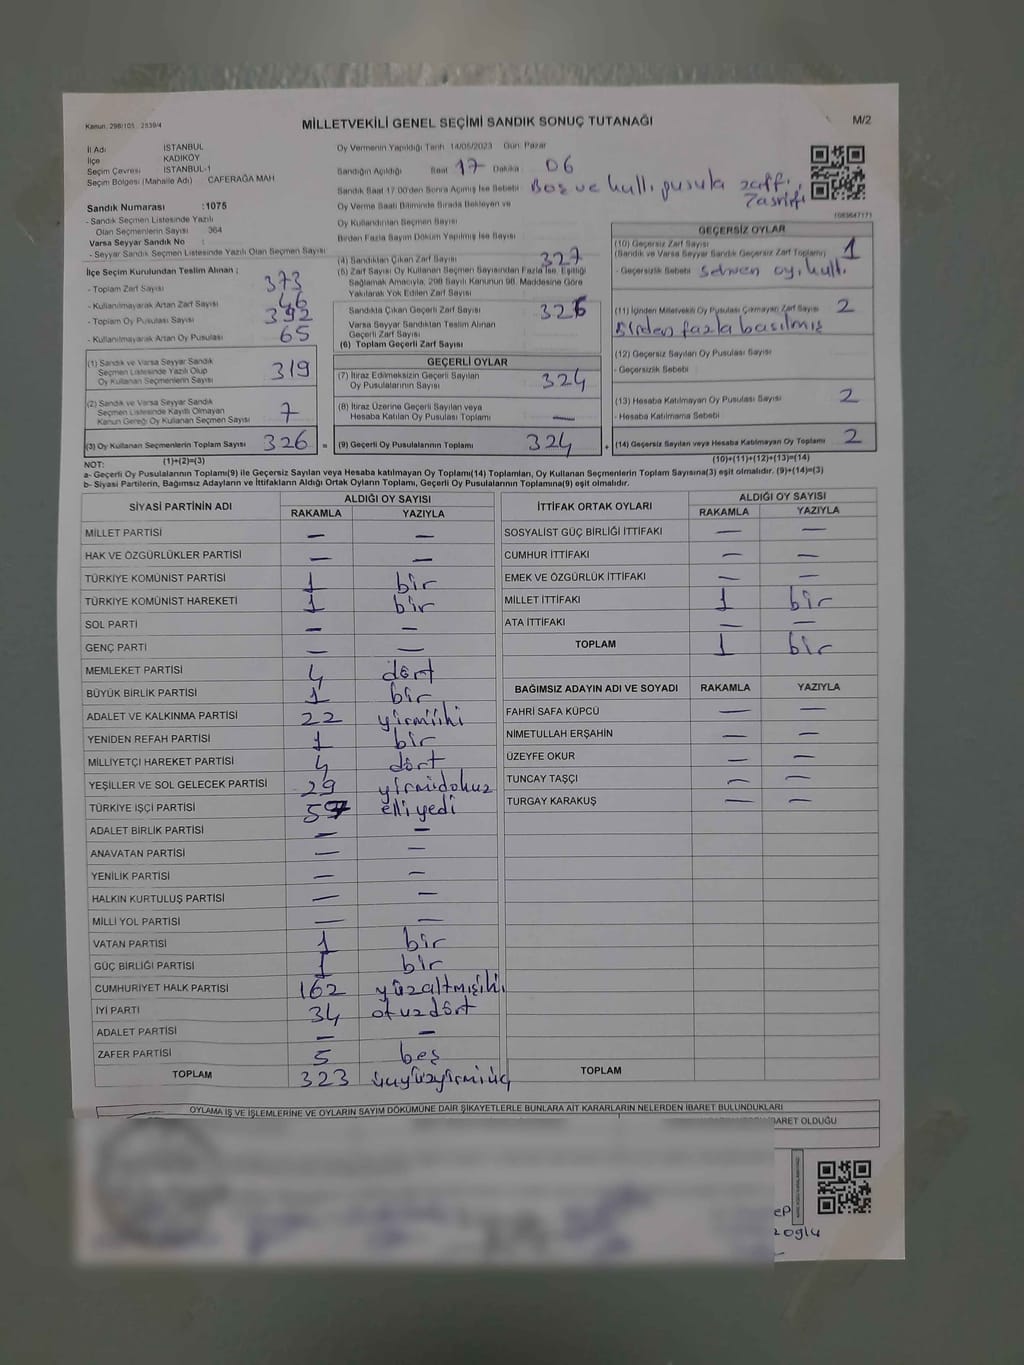 Kanun: 298/105 2839/4
MİLLETVEKİLİ GENEL SEÇİMİ SANDIK SONUÇ TUTANAĞI
M/2
İl Adı İSTANBUL
İlçe KADIKÖY
Seçim Çevresi İSTANBUL-1
Seçim Bölgesi (Mahalle Adı) CAFERAĞA MAH
Sandık Numarası :1075
- Sandık Seçmen Listesinde Yazılı
Olan Seçmenlerin Sayısı 364
Varsa Seyyar Sandık No :
- Seyyar Sandık Seçmen Listesinde Yazılı Olan Seçmen Sayısı
İlçe Seçim Kurulundan Teslim Alınan ;
- Toplam Zarf Sayısı 373
- Kullanılmayarak Artan Zarf Sayısı 46
- Toplam Oy Pusulası Sayısı 392
- Kullanılmayarak Artan Oy Pusulası 65
(1) Sandık ve Varsa Seyyar Sandık
Seçmen Listesinde Yazılı Olup
Oy Kullanan Seçmenlerin Sayısı 319
(2) Sandık ve Varsa Seyyar Sandık
Seçmen Listesinde Kayıtlı Olmayan
Kanun Gereği Oy Kullanan Seçmen Sayısı 7
(3) Oy Kullanan Seçmenlerin Toplam Sayısı 326 =
(1)+(2)=(3)
Oy Vermenin Yapıldığı Tarih 14/05/2023 Gün: Pazar
Sandığın Açıldığı Saat 17 Dakika 06
Sandık Saat 17.00'den Sonra Açılmış İse Sebebi Boş ve kull. pusula zarfı.
Tasnifi
Oy Verme Saati Bitiminde Sırada Bekleyen ve
Oy Kullandırılan Seçmen Sayısı
Birden Fazla Sayım Döküm Yapılmış İse Sayısı
(4) Sandıktan Çıkan Zarf Sayısı 327
(5) Zarf Sayısı Oy Kullanan Seçmen Sayısından Fazla İse, Eşitliği
Sağlamak Amacıyla, 298 Sayılı Kanunun 98. Maddesine Göre
Yakılarak Yok Edilen Zarf Sayısı
Sandıkta Çıkan Geçerli Zarf Sayısı 326
Varsa Seyyar Sandıktan Teslim Alınan
Geçerli Zarf Sayısı
(6) Toplam Geçerli Zarf Sayısı
GEÇERLİ OYLAR
(7) İtiraz Edilmeksizin Geçerli Sayılan
Oy Pusulalarının Sayısı 324
(8) İtiraz Üzerine Geçerli Sayılan veya
Hesaba Katılan Oy Pusulası Toplamı —
(9) Geçerli Oy Pusulalarının Toplamı 324 +
GEÇERSİZ OYLAR
(10) Geçersiz Zarf Sayısı
(Sandık ve Varsa Seyyar Sandık Geçersiz Zarf Toplamı) 1
- Geçersizlik Sebebi sehven oy kull.
(11) İçinden Milletvekili Oy Pusulası Çıkmayan Zarf Sayısı 2
Birden fazla basılmış
(12) Geçersiz Sayılan Oy Pusulası Sayısı
- Geçersizlik Sebebi
(13) Hesaba Katılmayan Oy Pusulası Sayısı 2
- Hesaba Katılmama Sebebi
(14) Geçersiz Sayılan veya Hesaba Katılmayan Oy Toplamı 2
(10)+(11)+(12)+(13)=(14)
NOT:
a- Geçerli Oy Pusulalarının Toplamı(9) ile Geçersiz Sayılan veya Hesaba katılmayan Oy Toplamı(14) Toplamları, Oy Kullanan Seçmenlerin Toplam Sayısına(3) eşit olmalıdır. (9)+(14)=(3)
b- Siyasi Partilerin, Bağımsız Adayların ve İttifakların Aldığı Ortak Oyların Toplamı, Geçerli Oy Pusulalarının Toplamına(9) eşit olmalıdır.
SİYASİ PARTİNİN ADI ALDIĞI OY SAYISI
RAKAMLA YAZIYLA
MİLLET PARTİSİ — —
HAK VE ÖZGÜRLÜKLER PARTİSİ — —
TÜRKİYE KOMÜNİST PARTİSİ 1 bir
TÜRKİYE KOMÜNİST HAREKETİ 1 bir
SOL PARTİ — —
GENÇ PARTİ — —
MEMLEKET PARTİSİ 4 dört
BÜYÜK BİRLİK PARTİSİ 1 bir
ADALET VE KALKINMA PARTİSİ 22 yirmiiki
YENİDEN REFAH PARTİSİ 1 bir
MİLLİYETÇİ HAREKET PARTİSİ 4 dört
YEŞİLLER VE SOL GELECEK PARTİSİ 29 yirmidokuz
TÜRKİYE İŞÇİ PARTİSİ 57 elliyedi
ADALET BİRLİK PARTİSİ — —
ANAVATAN PARTİSİ — —
YENİLİK PARTİSİ — —
HALKIN KURTULUŞ PARTİSİ — —
MİLLİ YOL PARTİSİ — —
VATAN PARTİSİ 1 bir
GÜÇ BİRLİĞİ PARTİSİ 1 bir
CUMHURİYET HALK PARTİSİ 162 yüzaltmışiki
İYİ PARTİ 34 otuzdört
ADALET PARTİSİ — —
ZAFER PARTİSİ 5 beş
TOPLAM 323 üçyüzyirmiüç
İTTİFAK ORTAK OYLARI ALDIĞI OY SAYISI
RAKAMLA YAZIYLA
SOSYALİST GÜÇ BİRLİĞİ İTTİFAKI — —
CUMHUR İTTİFAKI — —
EMEK VE ÖZGÜRLÜK İTTİFAKI — —
MİLLET İTTİFAKI 1 bir
ATA İTTİFAKI — —
TOPLAM 1 bir
BAĞIMSIZ ADAYIN ADI VE SOYADI RAKAMLA YAZIYLA
FAHRİ SAFA KÜPCÜ — —
NİMETULLAH ERŞAHİN — —
ÜZEYFE OKUR — —
TUNCAY TAŞÇI — —
TURGAY KARAKUŞ — —
TOPLAM
OYLAMA İŞ VE İŞLEMLERİNE VE OYLARIN SAYIM DÖKÜMÜNE DAİR ŞİKAYETLERLE BUNLARA AİT KARARLARIN NELERDEN İBARET BULUNDUKLARI
İBARET OLDUĞU